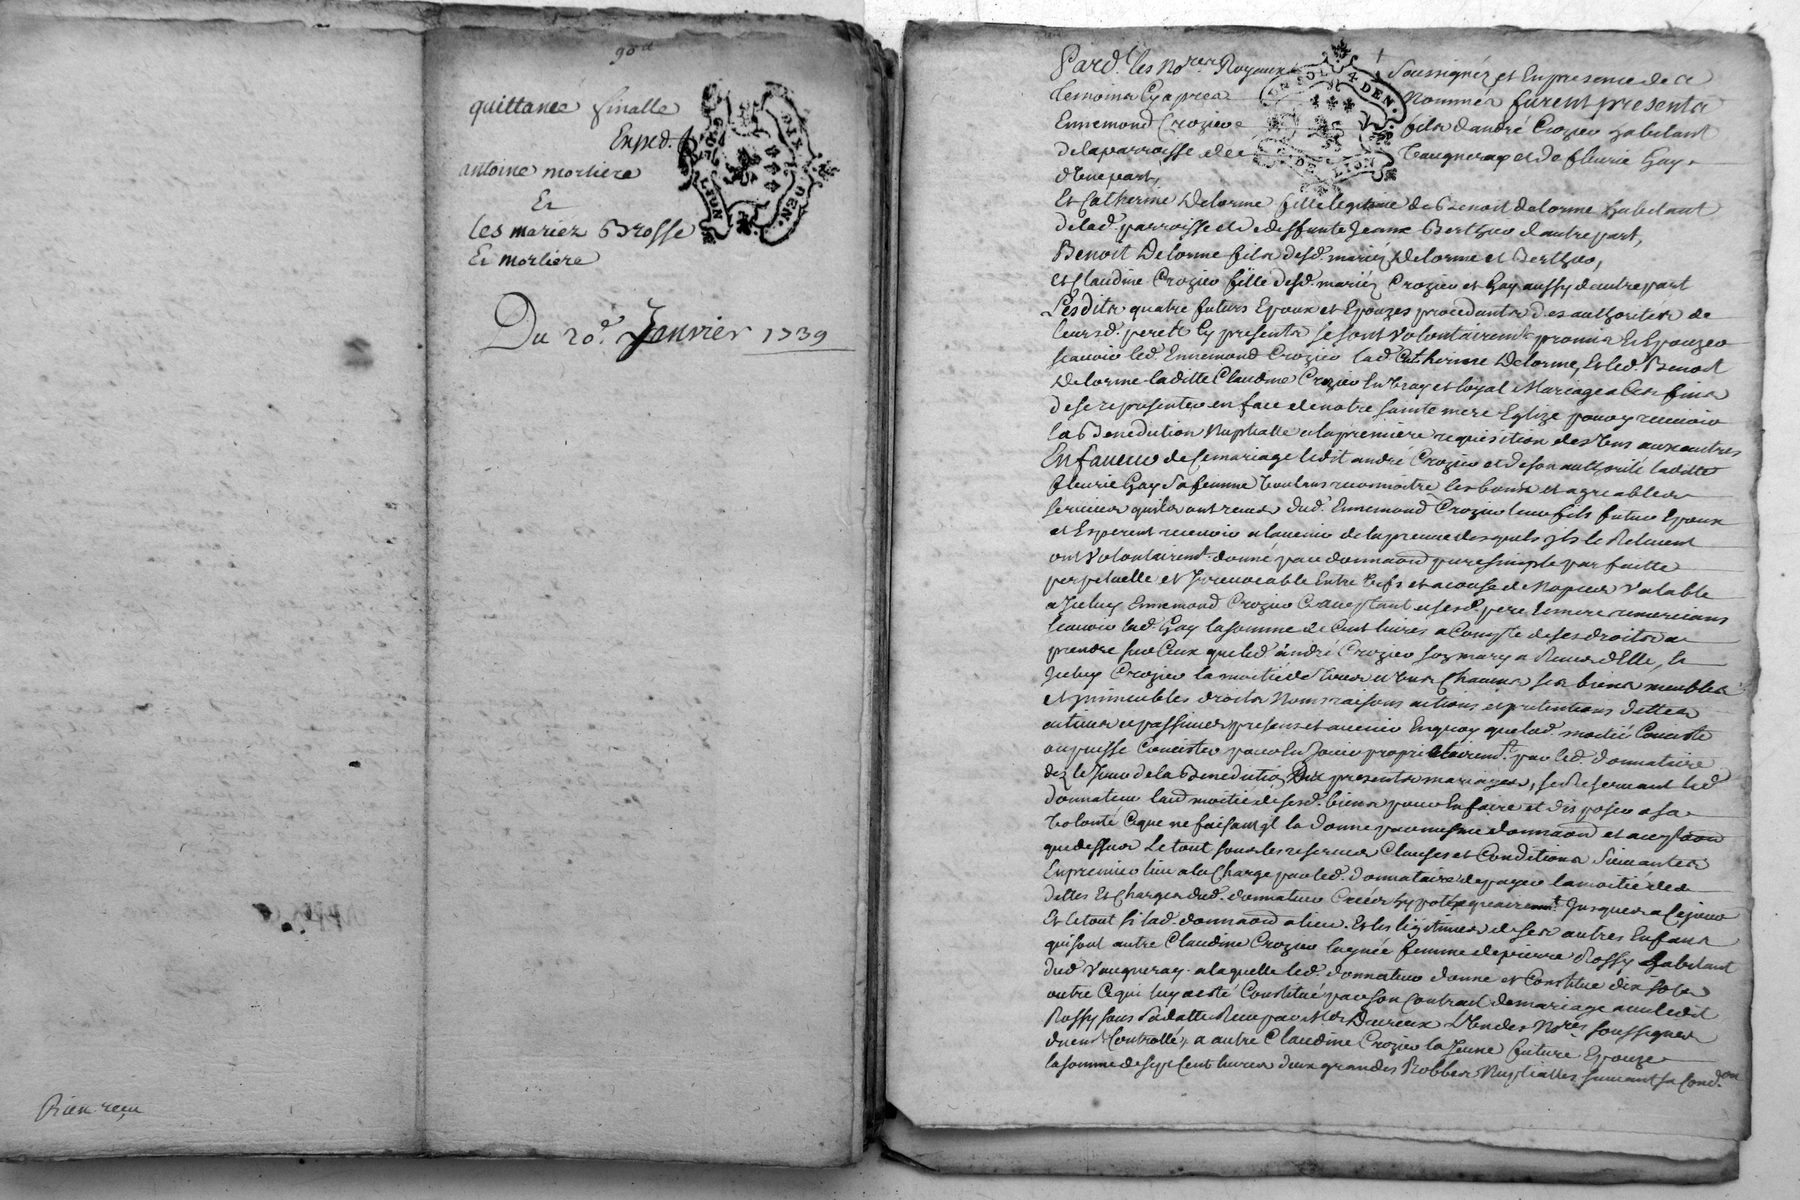 90d
quittance finalle
Exped.
antoine morliere
Et
les mariez Brosse
Et morliere
Du 20d. Janvier 1739
DIX DEN.
LYON
Rien reçu
Pard. les Nores Royaux soussignéz et En presence des
Temoins Cy apres Nommés furent presents
Ennemond Crozier fils d'andré Crozier habitant
de la parroisse de Vaugneray et de fleurie Gay
d'Une part,
Et Catherine Delorme fille legitime de Benoit delorme habitant
de lad. parroisse et de deffunte Jeanne Berthier d'autre part,
Benoit Delorme fils desd. mariéz Delorme et Berthier,
et Claudine Crozier fille desd. mariéz Crozier et Gay aussy d'autre part
Lesdits quatre futurs Epoux et Epouzes procedants des authorités de
leursd. peres Cy presents se sont volontairemt. promis Et Epouzer
scavoir led. Ennemond Crozier lad. Catherine Delorme, Et led. Benoit
Delorme laditte Claudine Crozier En vray et loyal Mariage a Ces fins
de se representer en face de notre sainte mere Eglize pour y recevoir
la Benediction Nuptialle a la premiere requisition des Uns aux autres
En faveur de Ce mariage ledit andré Crozier et de son authorité laditte
fleurie Gay sa femme voulans reconnoitre les bons et agreables
services quils ont receus dud. Ennemond Crozier leur fils futur Epoux
et Esperent recevoir a l'avenir de la preuve desquels ils le Relevent
ont volontairemt. donné par donnaon pure simple parfaitte
perpetuelle et Irrevocable Entre vifs et a cause de Nopces valable
a Iceluy Ennemond Crozier acceptant et sesd. pere et mere remerciant
scavoir lad. Gay la somme de Cent livres a Compte de ses droits a
prendre sur Ceux que led. andré Crozier son mary a Receu d'Elle, et
Iceluy Crozier la moitié de tous et Uns Chacuns ses biens meubles
et immeubles droits Noms raisons actions et pretentions dettes
actives et passives presens et avenir En quoy que lad. moitié Conciste
ou puisse Concister pour En Jouir proprietairemt. par led. donnataire
dez le Jour de la Benediction des presents mariages, se Reservant led.
donnateur laud. moitié de sesd. biens pour En faire et disposer a sa
volonté
que dessus Le tout sous les reserves Clauses et Conditions suivantes
En premier lieu a la Charge par led. donnataire de payer la moitié des
dettes Et Charges dud. donnateur Créés hypothequairemt. Jusques a Ce jour
Et le tout si lad. donnaon a lieu. Et les légitimes de ses autres Enfans
qui sont autre Claudine Crozier laynée femme de pierre Rossy habitant
dud. Vaugneray. a laquelle led. donnateur donne et Constitue dix sols
outre Ce qui luy a esté Constitué par son Contract de mariage avec ledit
Rossy sous sa datte Receu par Me Dureux L'Un des Nores soussignés
duement Controllé, a autre Claudine Crozier la Jeune future Epouze
la somme de sept Cent livres deux grandes Robbes Nuptialles suivant sa Condon